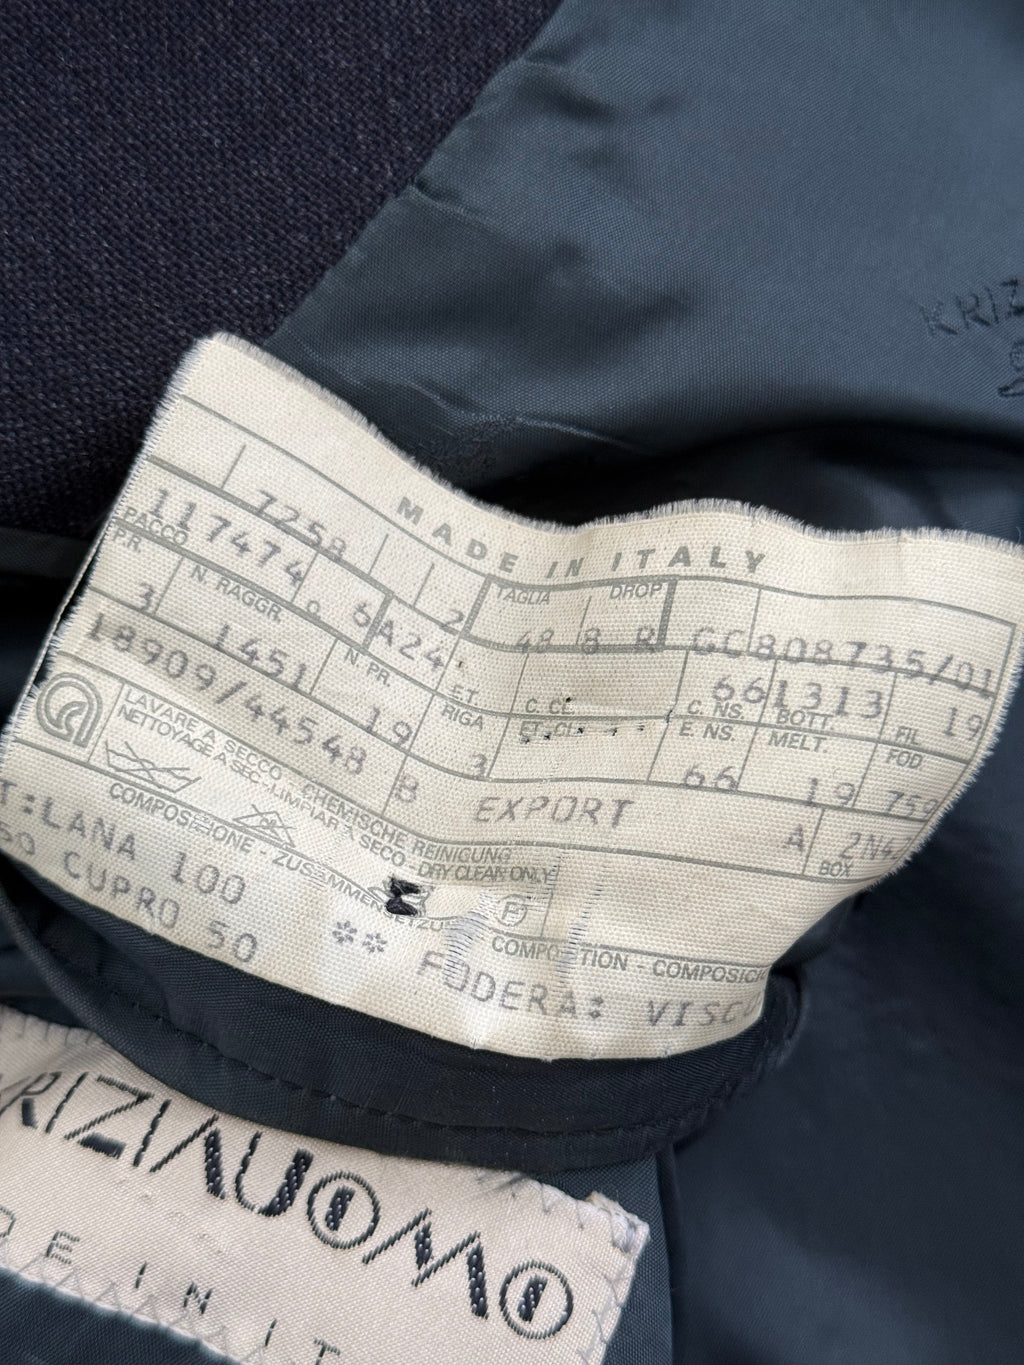 KRIZ
MADE IN ITALY
7258
11 7474 0 6 2
TAGLIA DROP
48 8 R GC808735/01
PACCO
P.R. N. RAGGR. A24
3 1451 N. PR. ET. C. CL. 661313 19
RIGA C. NS. BOTT. FIL
18909/44548 19 3 E. NS. MELT. FOD.
8 66 19 759
EXPORT A 2N4
BOX
LAVARE A SECCO - CHEMISCHE REINIGUNG
NETTOYAGE A SEC - LIMPIAR A SECO - DRY CLEAN ONLY
P
COMPOSIZIONE - ZUSAMMENSETZU
COMPOSITION - COMPOSICI
T:LANA 100 ** FODERA: VISCO
50 CUPRO 50
KRIZIAUOMO
DE IN IT